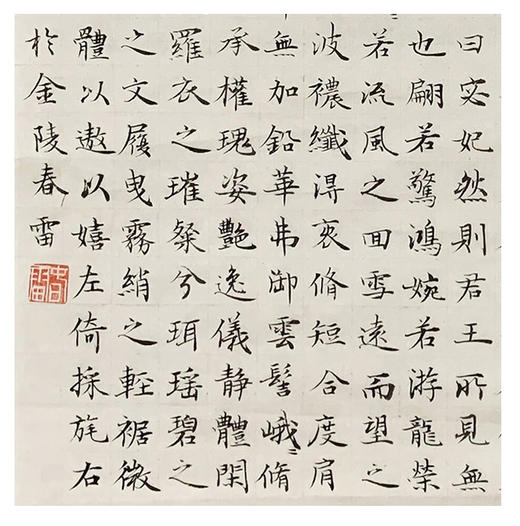 曰宓妃然則君王所見無
也翩若驚鴻婉若游龍榮
若流風之囬雪遠而望之
波襛纖得衷脩短合度肩
無加鉛華弗御雲髻峨〻脩
承權瑰姿艷逸儀靜體閑
羅衣之璀粲兮珥瑤碧之
之文履曳霧綃之輕裾微
體以遨以嬉左倚採旄右
於金陵春雷